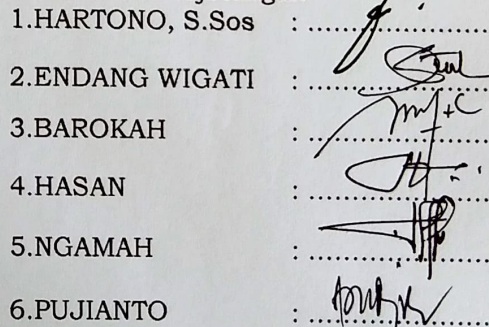 1.HARTONO, S.Sos :
2.ENDANG WIGATI :
3.BAROKAH :
4.HASAN :
5.NGAMAH :
6.PUJIANTO :